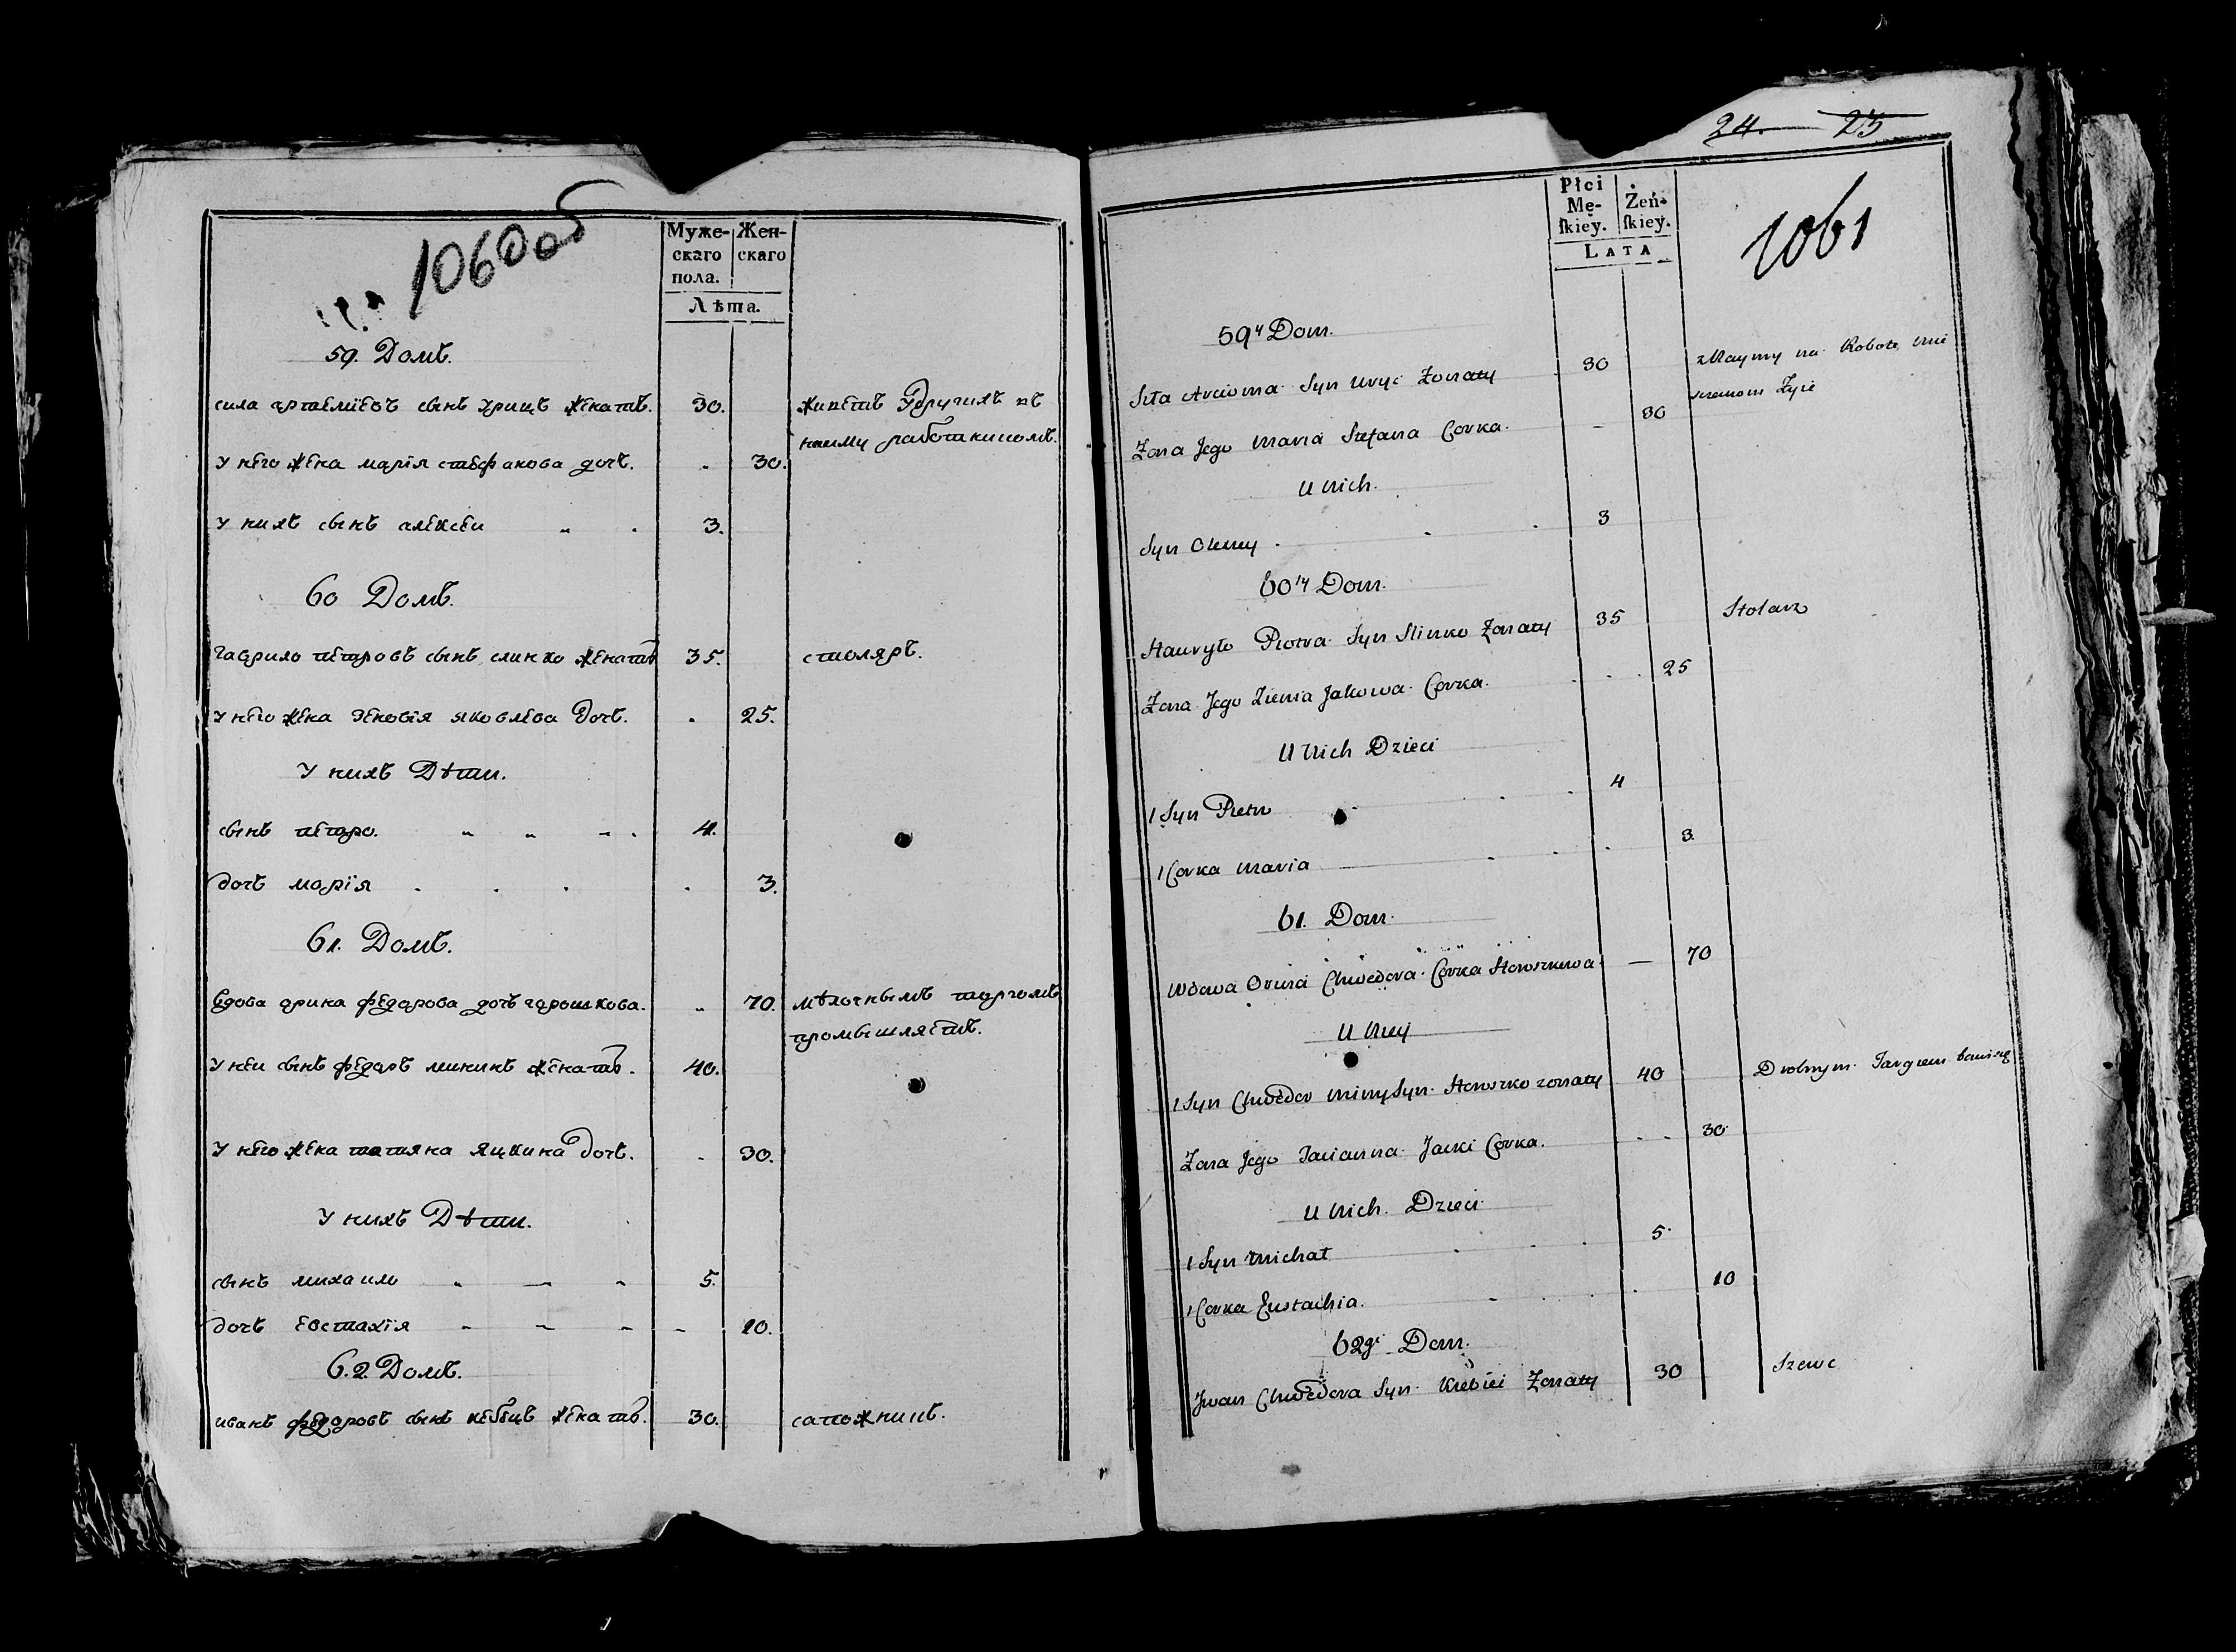 1060об
Муже-
скаго
пола.
Жен-
скаго
Лѣта.
59. Домъ.
сила артемиевъ сынъ гриць женатъ. 30. живетъ Удругихъ въ
наиму работникомъ.
У него жена марія стефанова дочь. 30.
У нихъ сынъ алексеи 3.
60 Домъ.
гаврило петровъ сынъ слинко женатъ 35. столяръ.
У него жена зеновія яковлева дочь. 25.
У нихъ Дѣти.
сынъ петро. 4.
дочь марія 3.
61. Домъ.
Вдова арина федорова дочь горошкова. 70. мѣлочнымъ торгомъ
промышляетъ.
У неи сынъ федоръ мининъ женатъ. 40.
У него жена татяна яцкина дочь. 30.
У нихъ Дѣти.
сынъ михаило 5.
дочь евстахія 10.
62. Домъ.
иванъ федоровъ сынъ женатъ. 30. сапожникъ.
24. 25
Płci
Mę-
ſkiey.
Żeń-
ſkiey.
LATA
1061
59ty Dom.
Siła Arcioma Syn Żonaty 30 na Robote
Żona Jego Maria Stefana Corka. 30 Żyie
U Nich.
Syn Olexey 3
60ty Dom.
Hawryło Piotra Syn Slinko Żonaty 35 Stolarz
Żona Jego Zienia Jakowa Corka. 25
U Nich Dzieci
1 Syn Pietro 4
1 Corka Maria 3
61. Dom.
Wdowa Orina Chwedora Corka Horoszkowa 70
U Niey
1 Syn Chwedor Miny Syn Horoszko zonaty 40 Drobnym Targiem bawi się
Żona Jego Tacianna Jacki Corka. 30
U Nich Dzieci
1 Syn Michał 5
1 Corka Eustachia. 10
62gi Dom.
Jwan Chwedora Syn Żonaty 30 Szewc